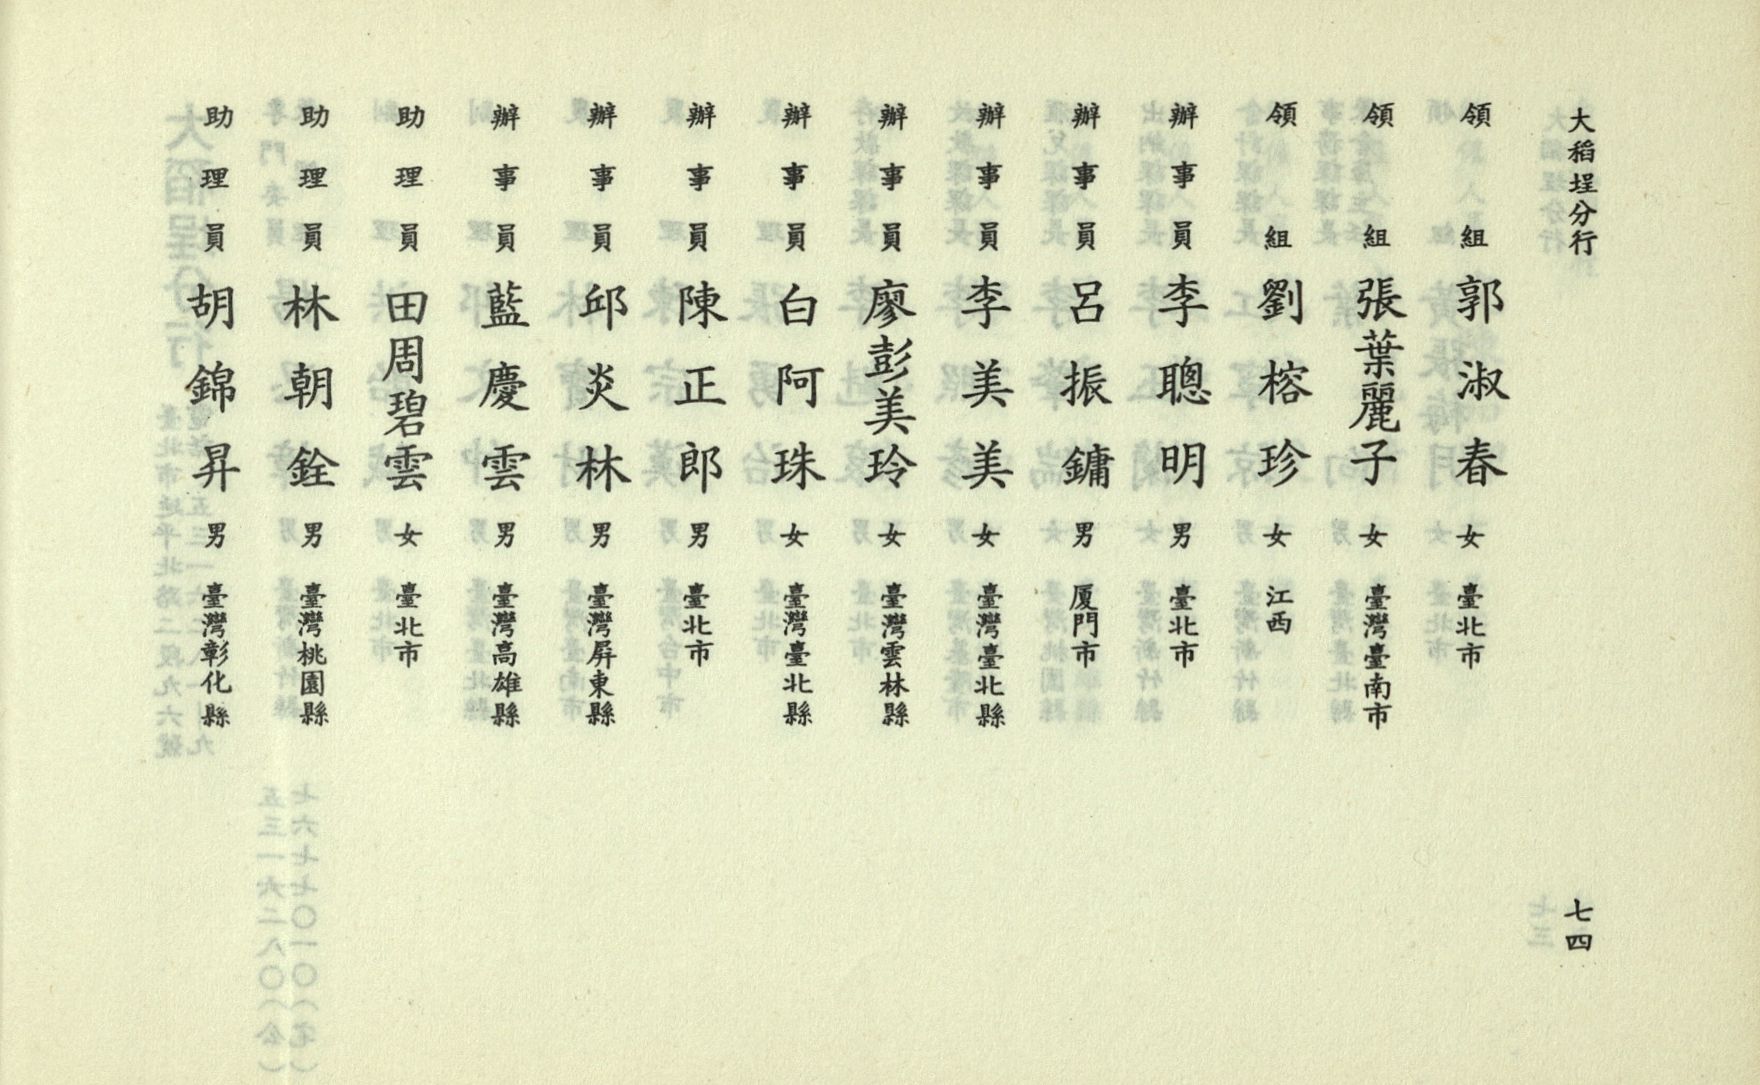 大稻埕分行
領組 郭淑春 女 臺北市
領組 張葉麗子 女 臺灣臺南市
領組 劉榕珍 女 江西
辦事員 李聰明 男 臺北市
辦事員 呂振鏞 男 厦門市
辦事員 李美美 女 臺灣臺北縣
辦事員 廖彭美玲 女 臺灣雲林縣
辦事員 白阿珠 女 臺灣臺北縣
辦事員 陳正郎 男 臺北市
辦事員 邱炎林 男 臺灣屏東縣
辦事員 藍慶雲 男 臺灣高雄縣
助理員 田周碧雲 女 臺北市
助理員 林朝銓 男 臺灣桃園縣
助理員 胡錦昇 男 臺灣彰化縣
七四